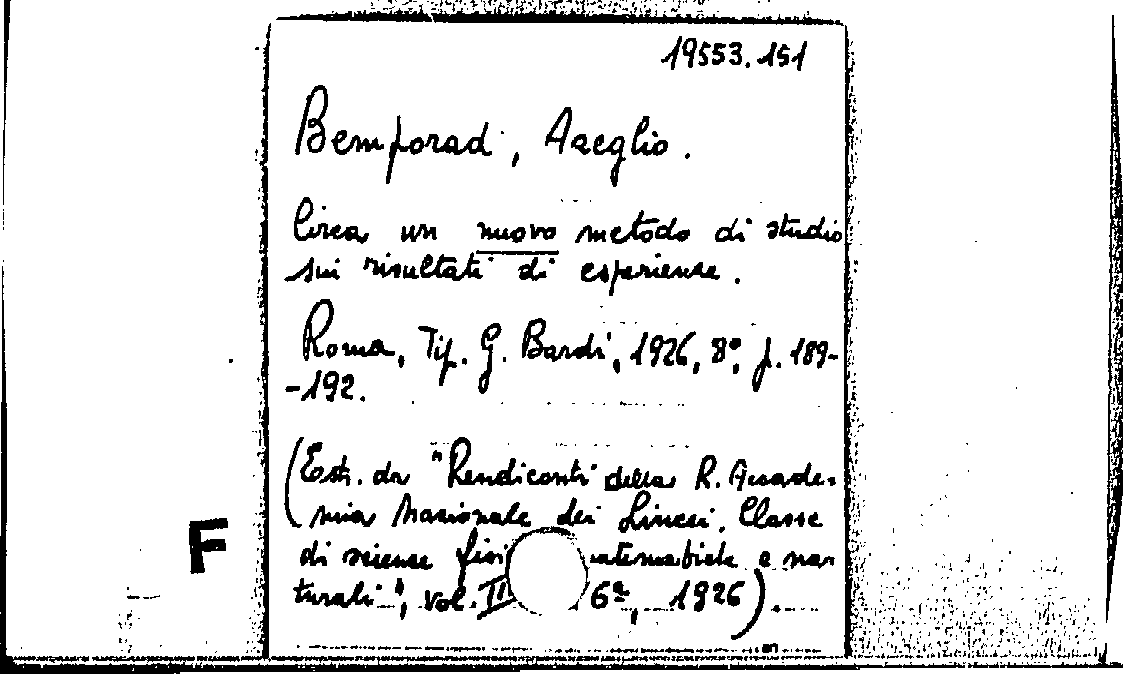 19553.151
Bemporad, Azeglio.
Circa un nuovo metodo di studio
sui risultati di esperienze.
Roma, Tip. G. Bardi, 1926, 8°, p. 189-
-192.
(Estr. da "Rendiconti della R. Accade-
mia Nazionale dei Lincei. Classe
di scienze fisi matematiche e na-
F
turali", vol. II 6ª, 1926).